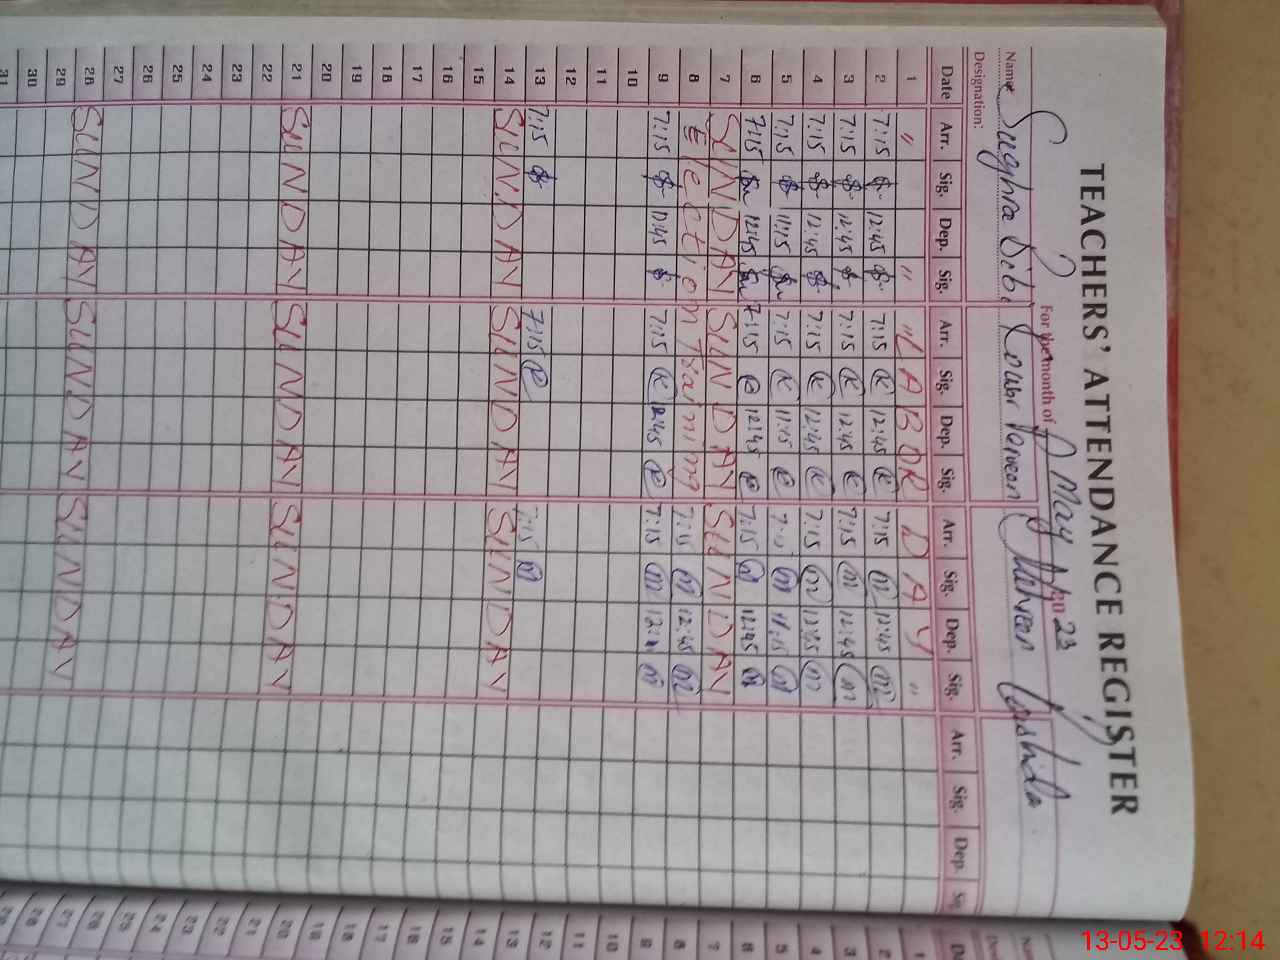 TEACHERS' ATTENDANCE REGISTER
For the month of May 2023
Name Sughra Bibi Kousar Parveen Rashida
Designation:
Date Arr. Sig. Dep. Sig. Arr. Sig. Dep. Sig. Arr. Sig. Dep. Sig. Arr. Sig. Dep. Sig
1 " " " LABOR DAY "
2 7:15 12:45 7:15 12:45 7:15 12:45
3 7:15 12:45 7:15 12:45 7:15 12:45
4 7:15 12:45 7:15 12:45 7:15 12:45
5 7:15 11:15 7:15 11:15 7:15 11:15
6 7:15 12:45 7:15 12:45 7:15 12:45
7 SUNDAY SUNDAY SUNDAY
8 Election Training 7:15 12:45
9 7:15 12:45 7:15 12:45 7:15
10
11
12
13 7:15 7:15 7:15
14 SUNDAY SUNDAY SUNDAY
15
16
17
18
19
20
21 SUNDAY SUNDAY SUNDAY
22
23
24
25
26
27
28 SUNDAY SUNDAY SUNDAY
29
30
31
13-05-23 12:14